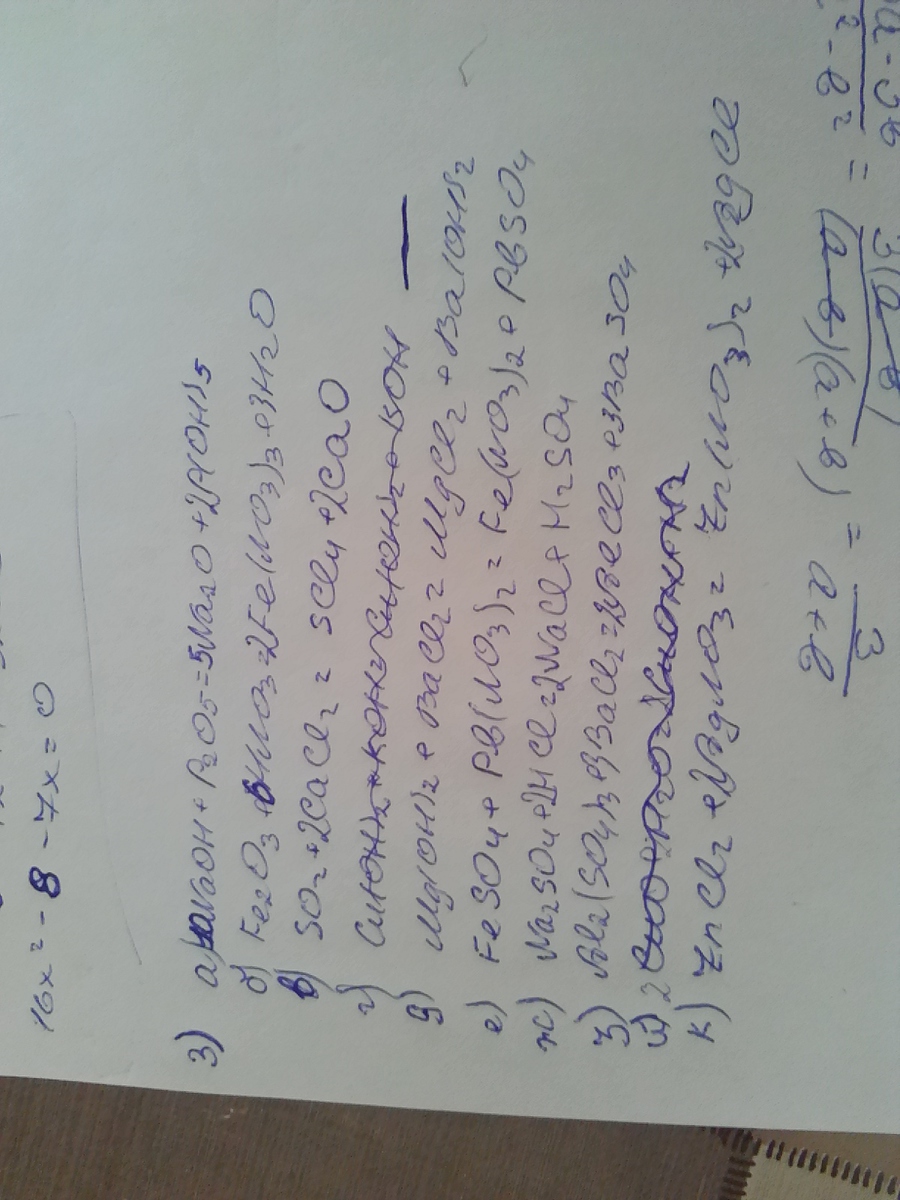 16x² - 8 - 7x = 0
3) а) NaOH + P₂O₅ = 5Na₂O + 2P(OH)₅
б) Fe₂O₃ + 6HNO₃ = 2Fe(NO₃)₃ + 3H₂O
в) SO₂ + 2CaCl₂ = SCl₄ + 2CaO
г) —
д) Mg(OH)₂ + BaCl₂ = MgCl₂ + Ba(OH)₂
е) FeSO₄ + Pb(NO₃)₂ = Fe(NO₃)₂ + PbSO₄
ж) Na₂SO₄ + 2HCl = 2NaCl + H₂SO₄
з) Al₂(SO₄)₃ + 3BaCl₂ = 2AlCl₃ + 3BaSO₄
и) 2
к) ZnCl₂ + 2AgNO₃ = Zn(NO₃)₂ + 2AgCl
a - 3в
² - в² = 3(a - в)
(a - в)(a + в) = 3
a + в